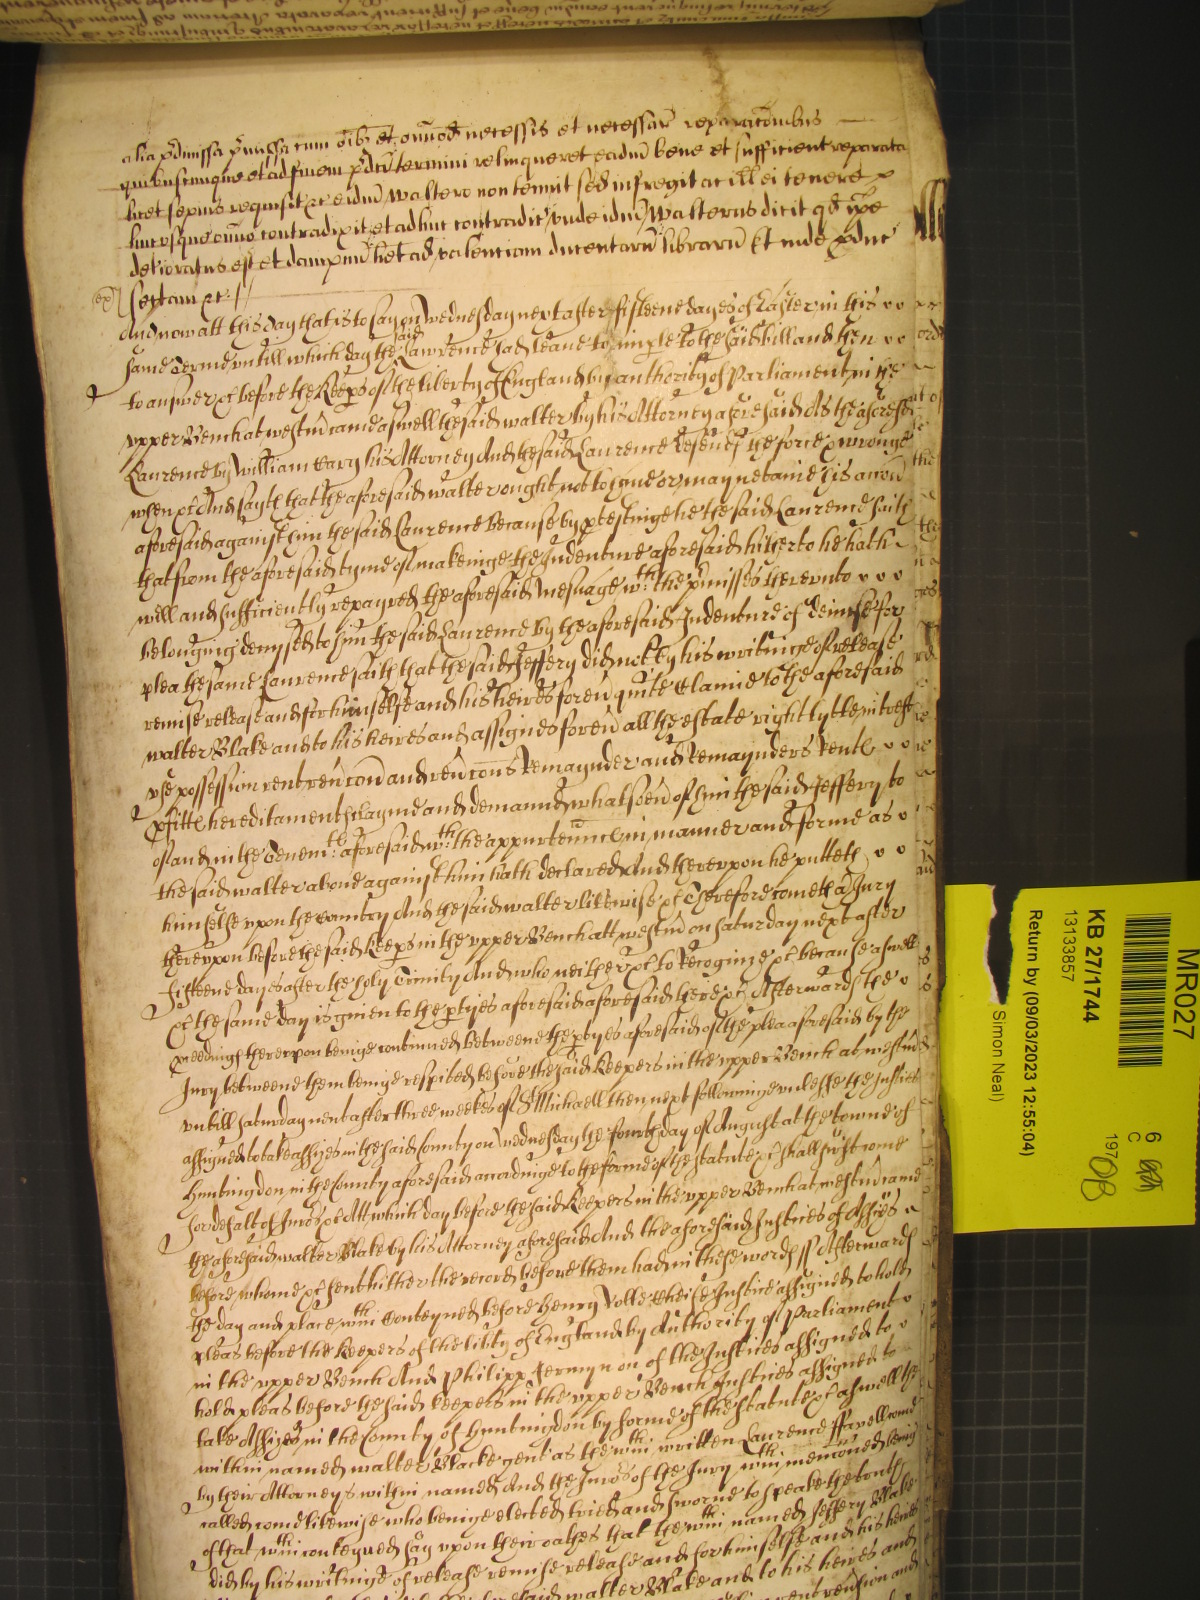 alia p̱dmissa p̱missa cum oĩbȝ et omĩod necessis et necessar̃ reparac̃onibus
quibuscunque et ad finem p̱dc̃i termini relinqueret eadm̃ bene et sufficient reparata
licet sepius requisit &c eidm̃ Waltero non tenuit sed infregit ac ill ei tenere
hucusque om̃no contradixit et adhuc contradic̃ unde idm̃ Walterus dicit qd ip̃e
deterioratus est et dampnũ het ad valenciam ducentarũ librarũ Et inde p̱duc̃
sectam &c //
And now att this day that is to say on Wednesday next after fifteene dayes of Easter in this
same Terme untill which day the said Lawrence had leave to imparle to the said bill and then
to answer &c before the Keeps of the liberty of England by authority of Parliament in the
upper Bench at Westm̃ came aswell the said Walter by his Attorney aforesaid As the aforesd
Laurence by William Cary his Attorney And the said Laurence defends the force & wronge
when &c And sayth that the aforesaid Walter ought not to have or mayneteine his accõn
aforesaid against him the said Laurence because by p̱testinge he the said Laurence saith
that from the aforesaid tyme of makeinge the Indenture aforesaid hitherto he hath
well and sufficiently repayred the aforesaid Messuage wth the p̱misses thereunto
belonging demysed to him the said Laurence by the aforesaid Indenture of demise for
plea the same Laurence saith that the said Jeffery did not by his writinge of release
remise release and for himselfe and his heires forev̉ quite clame to the aforesaid
Walter Blake and to his heires and assignes forev̉ all the estate right tytle intrest
use possession rent rev̉con and rev̉cons Remaynder and Remaynders Rents
p̱fitts hereditaments clayme and demaund whatsoev̉ of him the said Jeffery to
of and in the Tenemts aforesaid wth the appurtenñces in manner and forme as
the said Walter above against him hath declared And thereupon he putteth
himselfe upon the country And the said Walter likewise &c Therefore cometh a Jury
thereupon before the said Keeps in the upper Bench att Westm̃ on Saturday next after
fifteene dayes after the holy Trinity And who neither &c to Recognize &c because aswell
&c the same day is given to the p̱tyes aforesaid aforesaid here &c Afterwards the
p̱ceedings thereupon beinge continued betweene the p̱tyes aforesaid of the plea aforesaid by the
Jury betweene them beinge respited before the said Keepers in the upper Bench at Westm̃
untill Saturday next after three weekes of St Michaell then next followinge unlesse the Justices
assigned to take assizes in the said County on Wednesday the fourth day of August at the towne of
Huntingdon in the County aforesaid accordinge to the forme of the statute &c shall first come
for default of Juros &c Att which day before the said Keepers in the upper Bench at Westm̃ came
the aforesaid Walter Blake by his Attorney aforesaid And the aforesaid Justices of Assizes
before whome &c sent hither the record before them had in these words ss Afterwards
the day and place wthin conteyned before Henry Rolle Cheife Justice assigned to hold
pleas before the Keepers of the lib̃ty of England by Authority of Parliament
in the upper Bench And Philipp Jermyn on of the Justices assigned to
hold pleas before the said Keepers in the upper Bench Justices assigned to
take Assizes in the County of Huntingdon by forme of the statute &c aswell the
within named Walter Blake gent as the wthin written Laurence ffavell come
by their Attorneys within named And the Juros of the Jury wthin menc̃oned being
called come likewise who beinge elected tried and sworne to speake the truth
of that wthin conteyned say upon their oathes that the wthin named Jeffery Blake
did by his writinge of release remise release and for himselfe and his heires
said Walter Blake and to his heires and
rent rev̉sion and
MR027
KB 27/1744
13133857
Return by (09/03/2023 12:55:04)
Simon Neal)
6
C
197